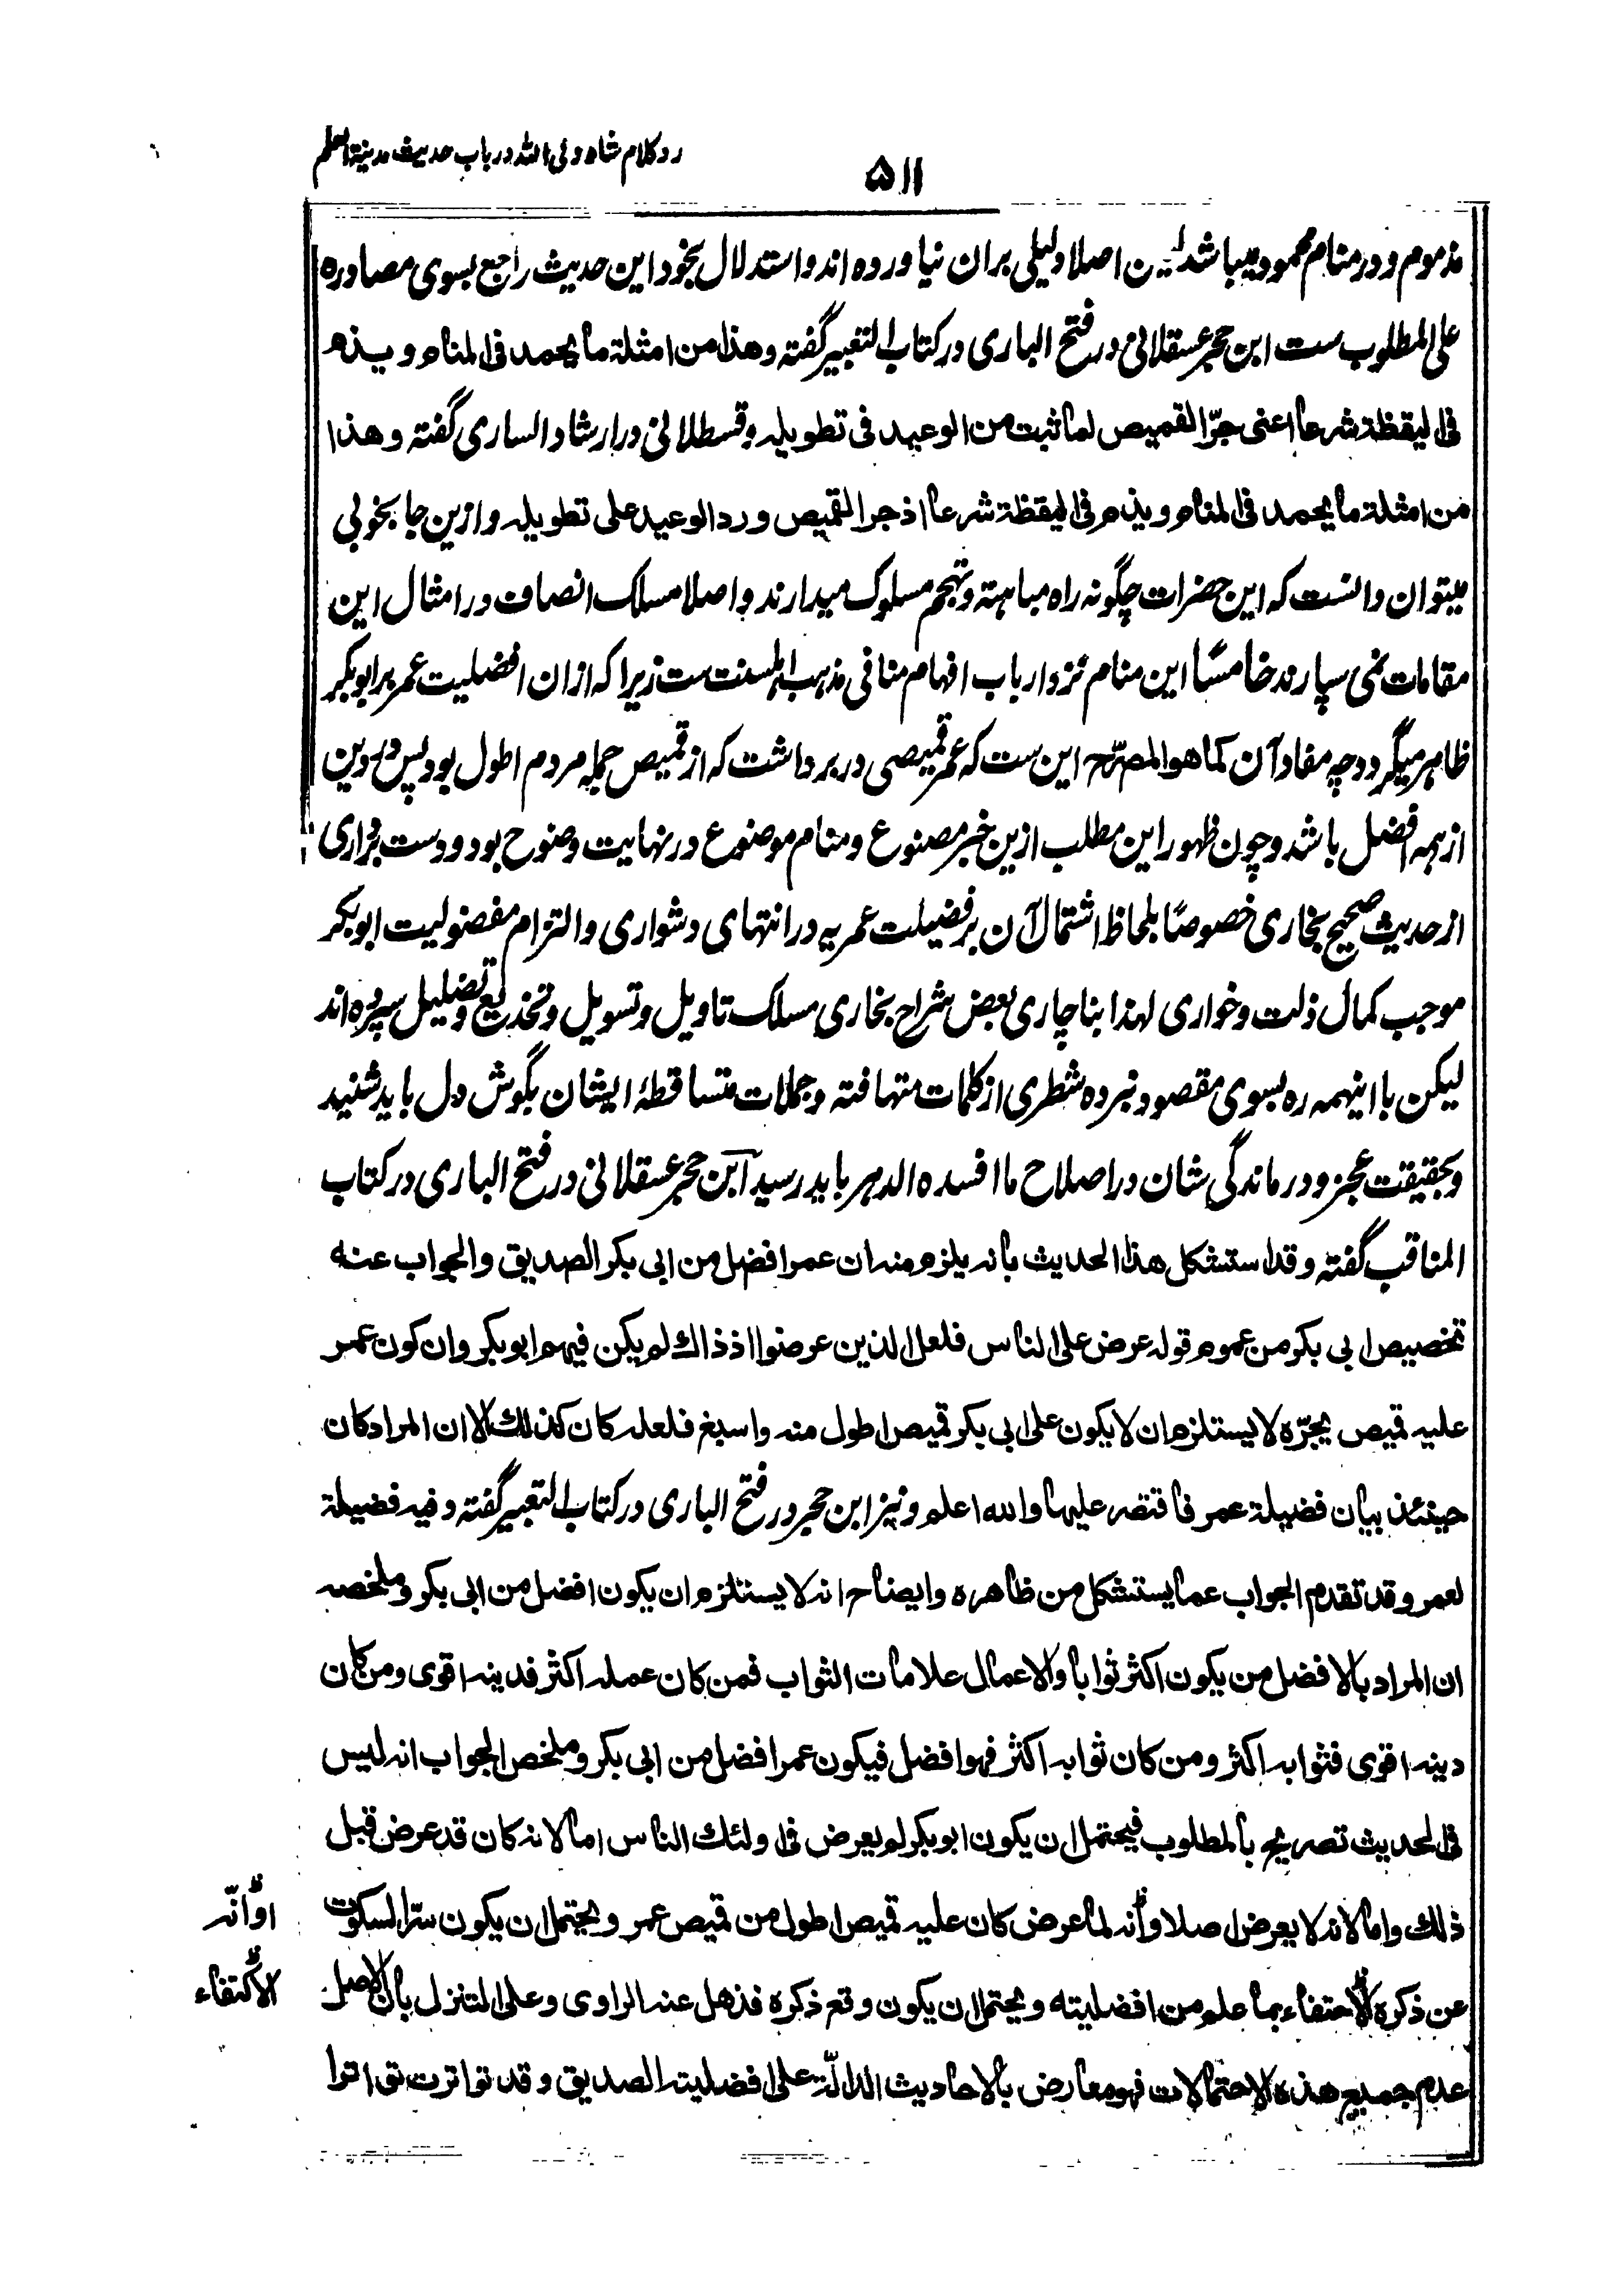 رد کلام شاه ولی الله در باب حدیث مدینة العلم
۵۱۱
مذموم و در منام محمود میباشد لیکن اصلا دلیلی بران نیاورده اند و استدلال بخود این حدیث راجع بسوی مصادره
علی المطلوب ست ابن حجر عسقلانی در فتح الباری در کتاب التعبیر گفته وهذا من امثلة ما یحمد فی المنام ویذم
فی الیقظة شرعا اعنی جرّ القمیص لما ثبت من الوعید فی تطویله و قسطلانی در ارشاد الساری گفته وهذا
من امثلة ما یحمد فی المنام ویذم فی الیقظة شرعا اذ جر القمیص ورد الوعید علی تطویله و ازین جا بخوبی
میتوان دانست که این حضرات چگونه راه مباهته و تهجم مسلوک میدارند و اصلا مسلک انصاف در امثال این
مقامات نمی سپارند خامسًا این منام نزد ارباب افهام منافی مذهب اهلسنت ست زیرا که ازان افضلیت عمر بر ابوبکر
ظاهر میگردد چه مفاد آن کما هو المصرّح این ست که عمر قمیصی در برداشت که از قمیص جمله مردم اطول بود پس در دین
از همه افضل باشد و چون ظهور این مطلب ازین خبر مصنوع و منام موضوع در نهایت وضوح بود و دست برداری
از حدیث صحیح بخاری خصوصًا بلحاظ اشتمال آن بر فضیلت عمریه در انتهای دشواری و التزام مفضولیت ابوبکر
موجب کمال ذلت و خواری لهذا بناچاری بعض شراح بخاری مسلک تاویل و تسویل و تخدیع و تضلیل سپرده اند
لیکن با اینهمه ره بسوی مقصود نبرده شطری از کلمات متهافته و جملات متساقطهٔ ایشان بگوش دل باید شنید
و بحقیقت عجز و درماندگی شان در اصلاح ما افسده الدهر باید رسید ابن حجر عسقلانی در فتح الباری در کتاب
المناقب گفته وقد استشکل هذا الحدیث بانه یلزم منه ان عمر افضل من ابی بکر الصدیق والجواب عنه
تخصیص ابی بکر من عموم قوله عرض علی الناس فلعل الذین عرضوا اذ ذاك لم یکن فیهم ابو بکر وان کون عمر
علیه قمیص یجرّه لا یستلزم ان لا یکون علی ابی بکر قمیص اطول منه واسبغ فلعله کان کذلك الا ان المراد کان
حینئذ بیان فضیلة عمر فاقتصر علیها والله اعلم و نیز ابن حجر در فتح الباری در کتاب التعبیر گفته وفیه فضیلة
لعمر وقد تقدم الجواب عما یستشکل من ظاهره وایضاح انه لا یستلزم ان یکون افضل من ابی بکر وملخصه
ان المراد بالافضل من یکون اکثر ثوابا والاعمال علامات الثواب فمن کان عمله اکثر فدینه اقوی ومن کان
دینه اقوی فثوابه اکثر ومن کان ثوابه اکثر فهو افضل فیکون عمر افضل من ابی بکر وملخص الجواب انه لیس
فی الحدیث تصریح بالمطلوب فیحتمل ان یکون ابو بکر لم یعرض فی اولئك الناس اما لانه کان قد عرض قبل
ذلك واما لانه لا یعرض اصلا وأنه لما عرض کان علیه قمیص اطول من قمیص عمر ویحتمل ان یکون سرّ السکوت
اوانّه
عن ذکره الاحتفاء بما علم من افضلیته ویحتمل ان یکون وقع ذکره فذهل عنه الراوی وعلی التنزل بان الاصل
الاکتفاء
عدم جمیع هذه الاحتمالات فهو معارض بالاحادیث الدالّة علی افضلیته الصدیق وقد تواترت تواترا